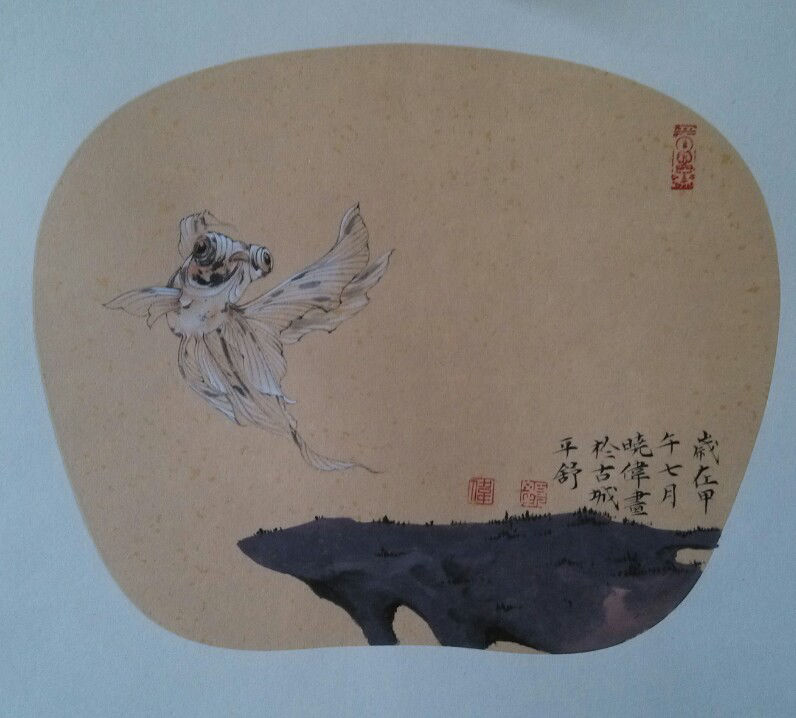 歲在甲
午七月
曉偉畫
於古城
平舒
偉